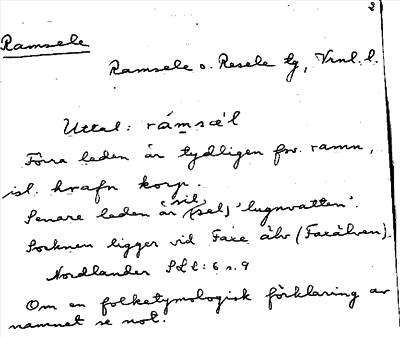 3
Ramsele
Ramsele o. Resele tg, Vrnl. l.
Uttal: rámsœ̀l
Förra leden är tydligen fsv. ramn,
isl. hrafn korp.
Senare leden är sil (sel) 'lugnvatten'.
Socknen ligger vid Faxe älv (Faxälven).
Nordlander SLl: 6 s. 9
Om en folketymologisk förklaring av
namnet se not.